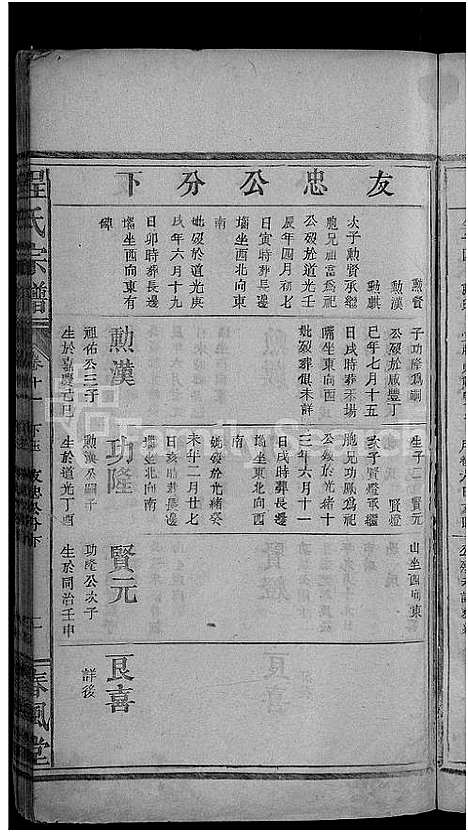 友忠公分下
勲賢
勲漢
勲麒
次子勲賢承繼
胞兄祖富爲祀
公歿於道光壬
辰年四月初七
日寅時葬長邊
壪坐西北向東
南
妣歿於道光庚
戌年六月十九
日卯時葬長邊
壪坐酉向東有
碑
子功隆爲嗣
公歿於咸豐丁
巳年七月十五
日戌時葬禾塲
嘴坐東向西
妣歿葬俱未詳
勲漢
祖佑公三子
生於嘉慶己巳
生子二 賢元
賢燈
亥子賢燈承繼
胞兄功鳳爲祀
公歿於光緒十
三年六月十一
日戌時葬長邊
壪坐東北向西
南
妣歿於光緒癸
未年二月廿七
日亥時葬長邊
壪坐北向南
功隆
勲漢公嗣子
生於道光丁酉
山坐酉向東
賢元
功隆公次子
生於同治壬申
艮喜
詳後
程氏宗譜
卷十一
友忠公分下
一
春風堂
FamilySearch